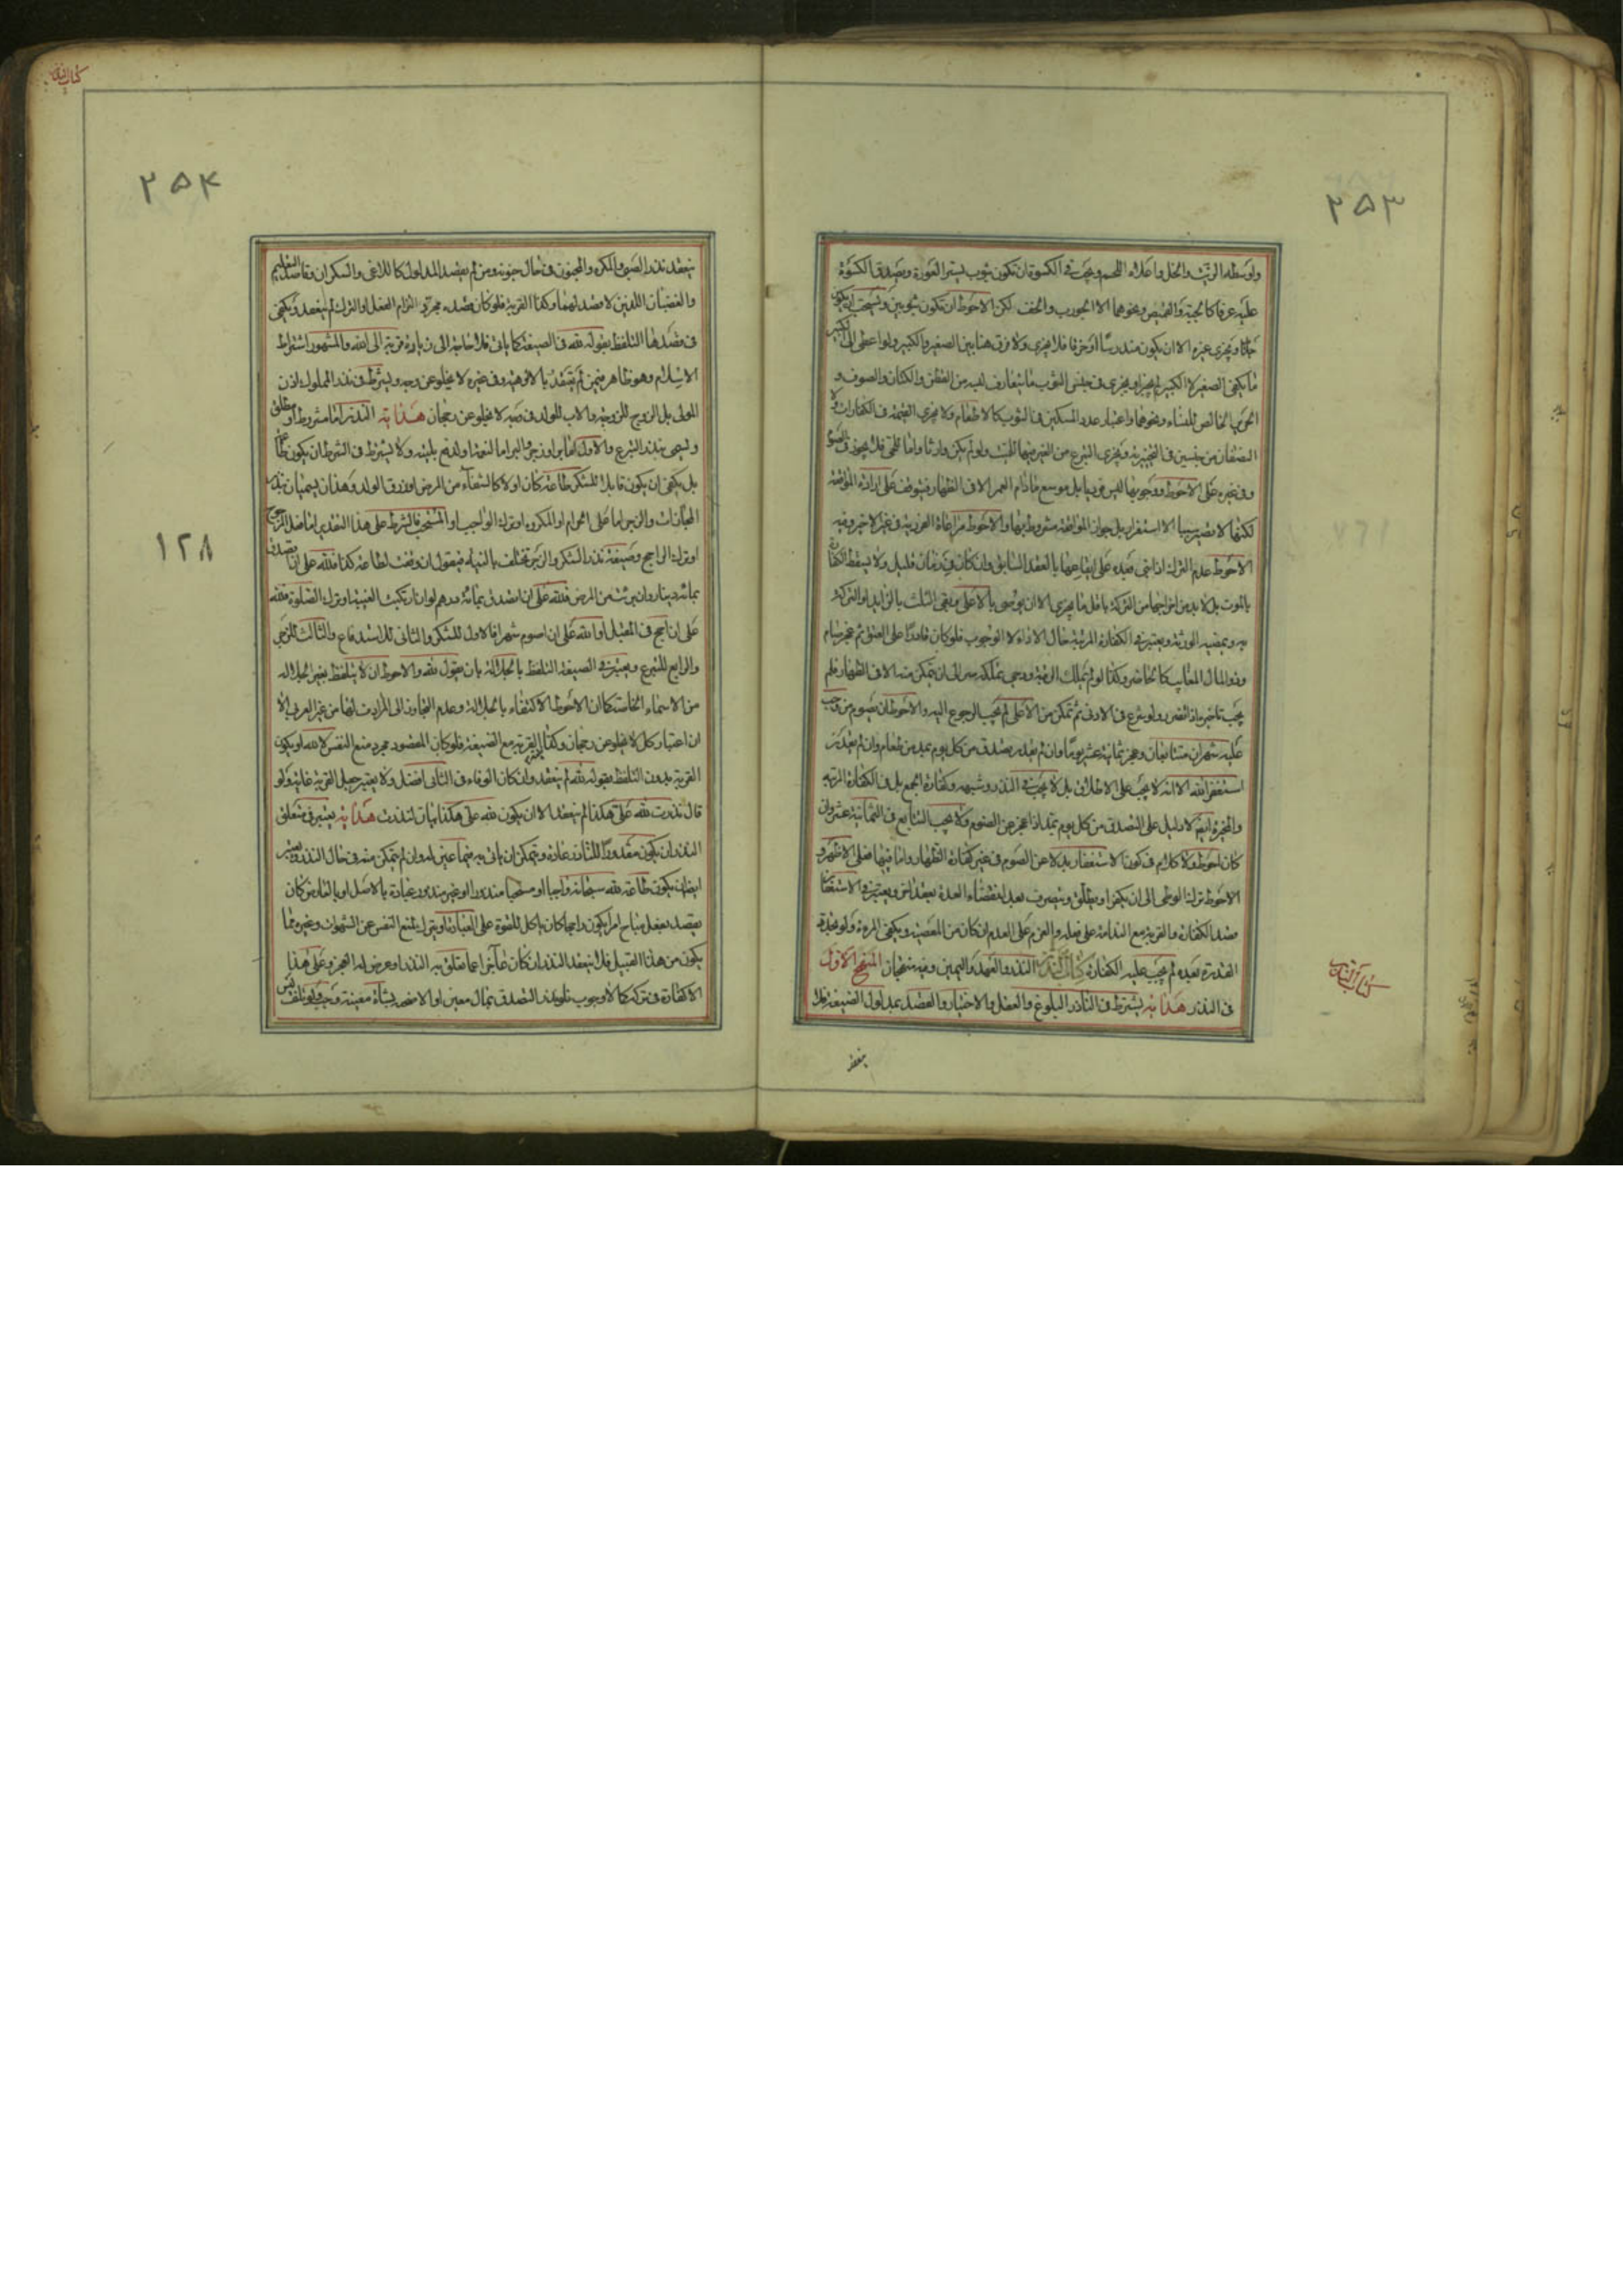 ٢٥٣
واوسطه الزيت والخل واعلاه اللحم ويجب في الكسوة ان تكون بثوب يستر العورة ويصدق الكسوة
عليه عرفا كالجبة والقميص ونحوهما الا الجورب والخف لكن الاحوط ان تكون بثوبين ويستحب ان يكون
جديدا ويجزي غيره الا ان يكون مندرسا او خرقا فلا يجزي ولا فرق هنا بين الصغير والكبير ولو اعطى الى الكبير
ما يكفي الصغير لا الكبير لم يجز ويجزي في جنس الثوب ما يتعارف لبسه من القطن والكتان والصوف و
الحرير الخالص للنساء ونحوها واعتبار عدد المسكين في الثوب كالاطعام ولا يجزي القيمة في الكفارات ولا
النصفان من جنسين في التخييرية ويجزي التبرع من الغير فيها للميت ولو لم يكن وارثا واما للحي فلا يجوز في الصوم
وفي غيره على الاحوط ووجوبها ليس فوريا بل موسع مادام العمر الا في الظهار فيتوقف على ارادة المواقعة
لكنها لا تصير سببا الاستقرار بل جواز المواقعة مشروط بها والاحوط مراعاة الفورية في غير الاخير وفيه
الاحوط عدم الترك اذا بقي قيده على ايقاعها بالعقد السابق وان كان في زمان قليل ولا يسقط الكفارة
بالموت بل لا بد من اخراجها من التركة باقل ما يجزي الا ان يوصى بالاعلى ويفي الثلث بالزايد او التركة و
به وبمضيه الورثة ويعتبر في الكفارة المرتبة حال الاداء لا الوجوب فلو كان قادرا على العتق ثم عجز صام
وفي المال الغايب كالحاضر وكذا لو لم يملك الرقبة ورجي تملكه صبر الى ان يتمكن منه الا في الظهار فلم
يجب تاخيره اذا تضرر ولو شرع في الادنى ثم تمكن من الاعلى لم يجب الرجوع اليه والاحوط ان يصوم من وجب
عليه شهران متتابعان وعجز ثمانية عشر يوما وان لم يقدر يصدق من كل يوم بمد من طعام وان لم يقدر
استغفر الله الا انه لا يجب على الاطلاق بل لا يجب في النذر وشبهه وكفارة الجمع بل في الكفارة المرتبة
والمخيرة ايضا لا دليل على التصدق من كل يوم بمد اذا عجز عن الصوم ولا يجب التتابع في الثمانية عشر وان
كان احوط ولا كلام في كون الاستغفار بدلا عن الصوم في غير كفارة الظهار واما فيها فعلى الاظهر و
الاحوط ترك الوطي الى ان يكفر او يطلق ويتصرف بعد انقضاء العدة بعقد اخر ويعتبر في الاستغفار
قصد الكفارة والقربة مع الندامة على فعله والعزم على العدم ان كان من المعصية ويكفي المرة ولو تجدد
القدرة بعده لم يجب عليه الكفارة كتاب النذر النذر والعهد واليمين وفيه منهجان المنهج الاول
في النذر هداية يشترط في الناذر البلوغ والعقل والاختيار والقصد بمدلول الصيغة فلا
كتاب النذر
ينعقد
كتاب النذر
٢٥٤
ينعقد نذر الصبي والمكره والمجنون في حال جنونه ومن لم يقصد المدلول كاللاغي والسكران وقاصد التعليم
والغضبان اللذين لا قصد لهما وكذا القربة فلو كان قصده مجرد التزام الفعل او الترك لم ينعقد ويكفي
في قصدها التلفظ بقوله لله في الصيغة كما ياتي فلا حاجة الى زيادة قربة الى الله والمشهور اشتراط
الاسلام وهو ظاهر فيمن لم يعتقد بالالوهية وفي غيره لا يخلو عن وجه ويشترط في نذر المملوك اذن
المولى بل الزوج للزوجة والاب للولد في صبه لا يخلو عن رجحان هداية النذر اما مشروط او مطلق
ويسمى بنذر التبرع والاول اما بر او زجر والبر اما لنعمة او لدفع بلية ولا يشترط في الشرط ان يكون طاعة
بل يكفي ان يكون قابلا للشكر طاعة كان اولا كالشفاء من المرض او رزق الولد وهذان يسميان بنذر
المجازات والزجر اما على الحرام او المكروه او ترك الواجب او المستحب فالشرط على هذا التقدير اما فعل المرجوح
او ترك الراجح وصيغة نذر الشكر والزجر تختلف بالنية فيقول ان وفقت لطاعة كذا فلله على ان اتصدق
بمائة دينار وان برئت من المرض فلله على ان اتصدق بمائة درهم او ان ارتكبت الغيبة او ترك الصلوة فلله
على ان احج في المقبل او لله على ان اصوم شهرا فالاول للشكر والثاني للاستدفاع والثالث للزجر
والرابع للتبرع ويعتبر في الصيغة التلفظ بالجلالة بان يقول لله والاحوط ان لا يتلفظ بغير الجلالة
من الاسماء الخاصة كما ان الاحوط الاكتفاء بالجلالة وعدم التجاوز الى المرادف لها من غير العربي الا
ان اعتبار كل لا يخلو عن رجحان وكذا القربة مع الصيغة فلو كان المقصود مجرد منع النفس لا لله او يكون
القربة بدون التلفظ بقوله لله لم ينعقد وان كان الوفاء في الثاني افضل ولا يعتبر جعل القربة غاية ولو
قال نذرت لله على هكذا لم ينعقد الا ان يكون لله على هكذا بيان لنذرت هداية يعتبر في متعلق
النذر ان يكون مقدورا للناذر عادة ويتمكن ان ياتي به فيما عين له وان لم يتمكن منه في حال النذر ويعتبر
ايضا ان يكون طاعة لله سبحانه واجبا او مستحبا منذورا او غير منذور عبادة بالاصل او بالعارض كان
يقصد بفعل مباح امرا يكون راجحا كان ياكل للقوة على العبادة او يترك لمنع النفس عن الشهوات وغيره مما
يكون من هذا القبيل فلا ينعقد النذر ان كان عاجزا عما تعلق به النذر او عرض له العجز وعلى هذا
لا كفارة في تركه كما لا وجوب فلو نذر التصدق بمال معين او الاضحية بشاة معينة وجب ولو تلف ليس
١٢٨